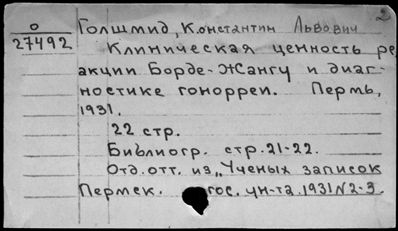 2
О Голшмид, Константин Львович
27492 Клиническая ценность ре
акции Борде-Жангу и диаг-
ностике гонорреи. Пермь,
1931.
22 стр.
Библиогр. стр. 21-22.
Отд. отт. из „Ученых записок
Пермск. гос. ун-та. 1931 N 2-3.